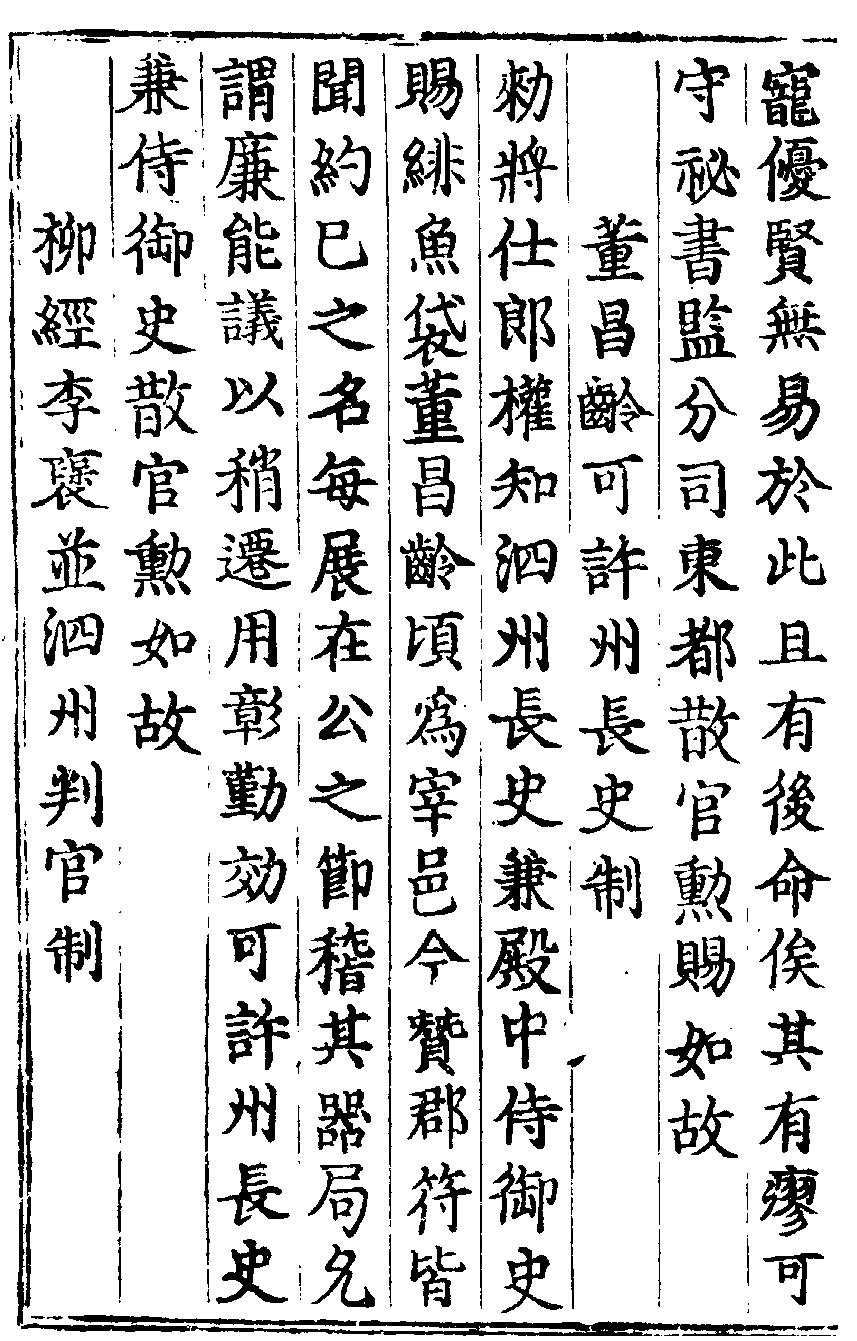 寵優賢無易於此且有後命俟其有瘳可
守祕書監分司東都散官勲賜如故
董昌齡可許州長史制
勑將仕郎權知泗州長史兼殿中侍御史
賜緋魚袋董昌齡頃爲宰邑今贊郡符皆
聞約已之名每展在公之節稽其器局允
謂廉能議以稍遷用彰勤効可許州長史
兼侍御史散官勲如故
柳經李褒並泗州判官制